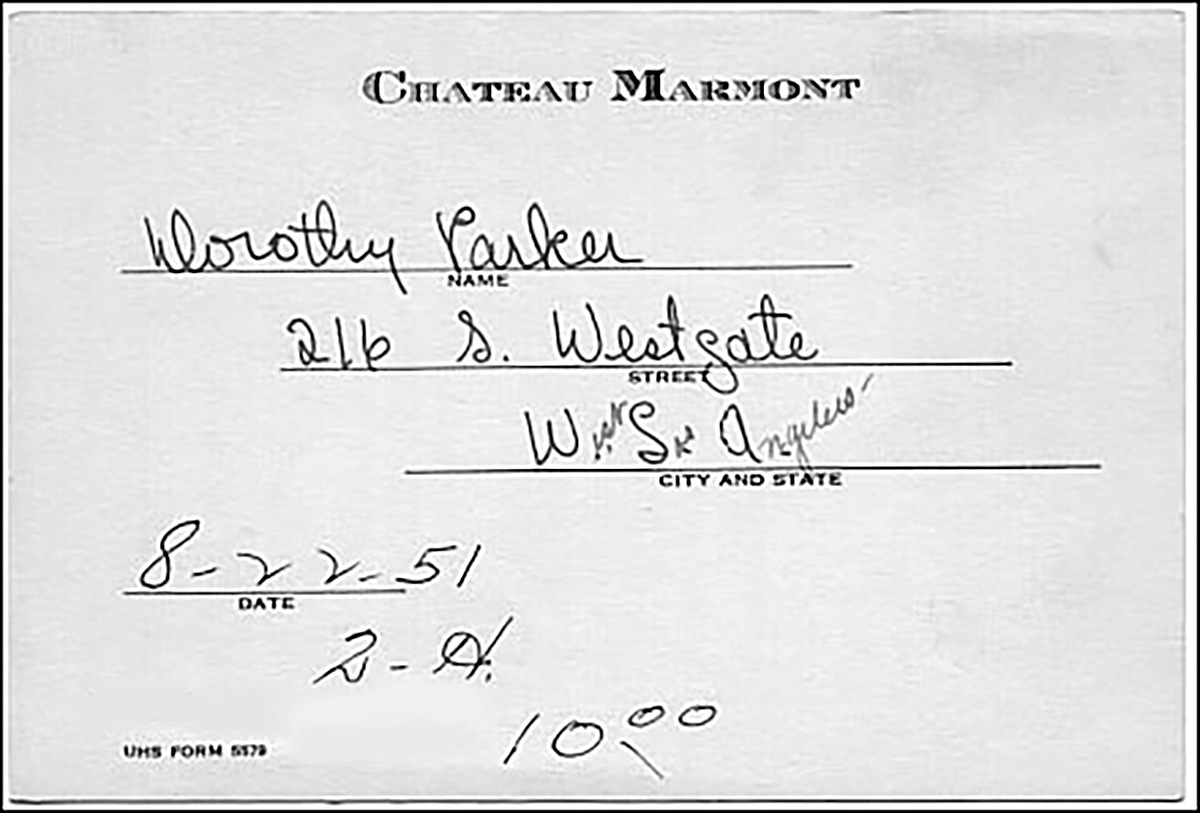 CHATEAU MARMONT
Dorothy Parker
NAME
216 S. Westgate
STREET
West Los Angeles-
CITY AND STATE
8-22-51
DATE
2-A
10.00
UHS FORM 5579